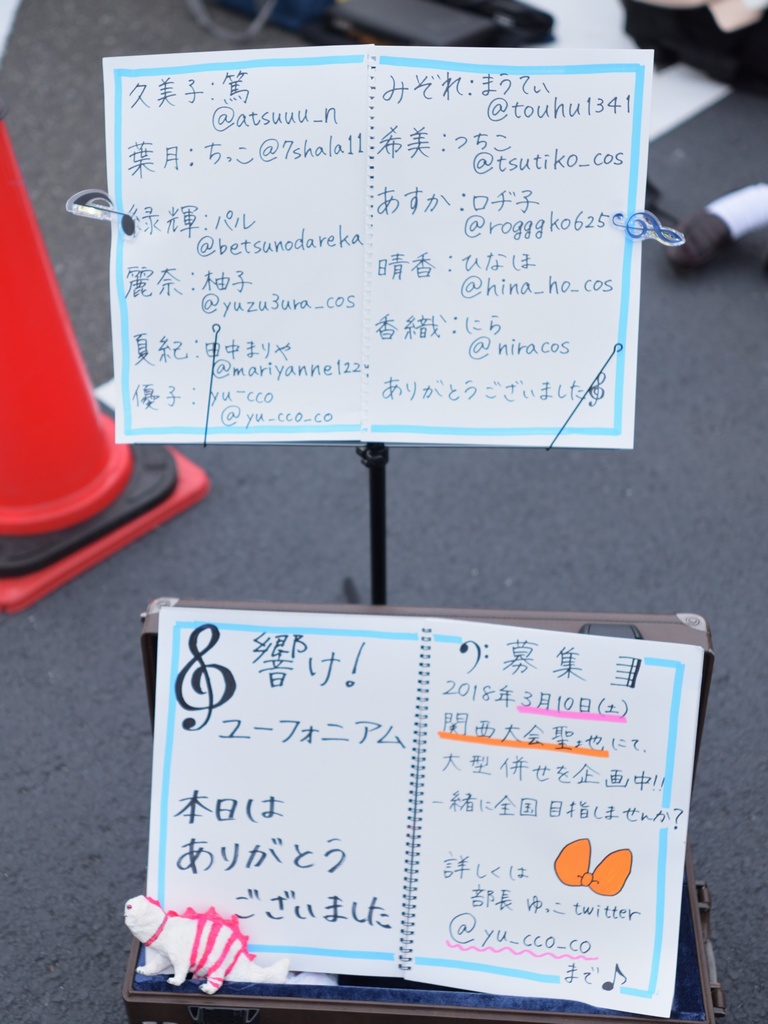 久美子:篤
@atsuuu_n
葉月:ちっこ@7shala11
緑輝:パル
@betsunodareka
麗奈:柚子
@yuzu3ura_cos
夏紀:田中まりや
@mariyanne122
優子:yu-cco
@yu_cco_co
みぞれ:まうてぃ
@touhu1341
希美:つちこ
@tsutiko_cos
あすか:ロヂ子
@rogggko625
晴香:ひなほ
@hina_ho_cos
香織:にら
@niracos
ありがとうございました
響け!
ユーフォニアム
本日は
ありがとう
ございました
募集
2018年3月10日(土)
関西大会聖地にて、
大型併せを企画中!!
一緒に全国目指しませんか?
詳しくは
部長ゆっこtwitter
@yu_cco_co
まで♪